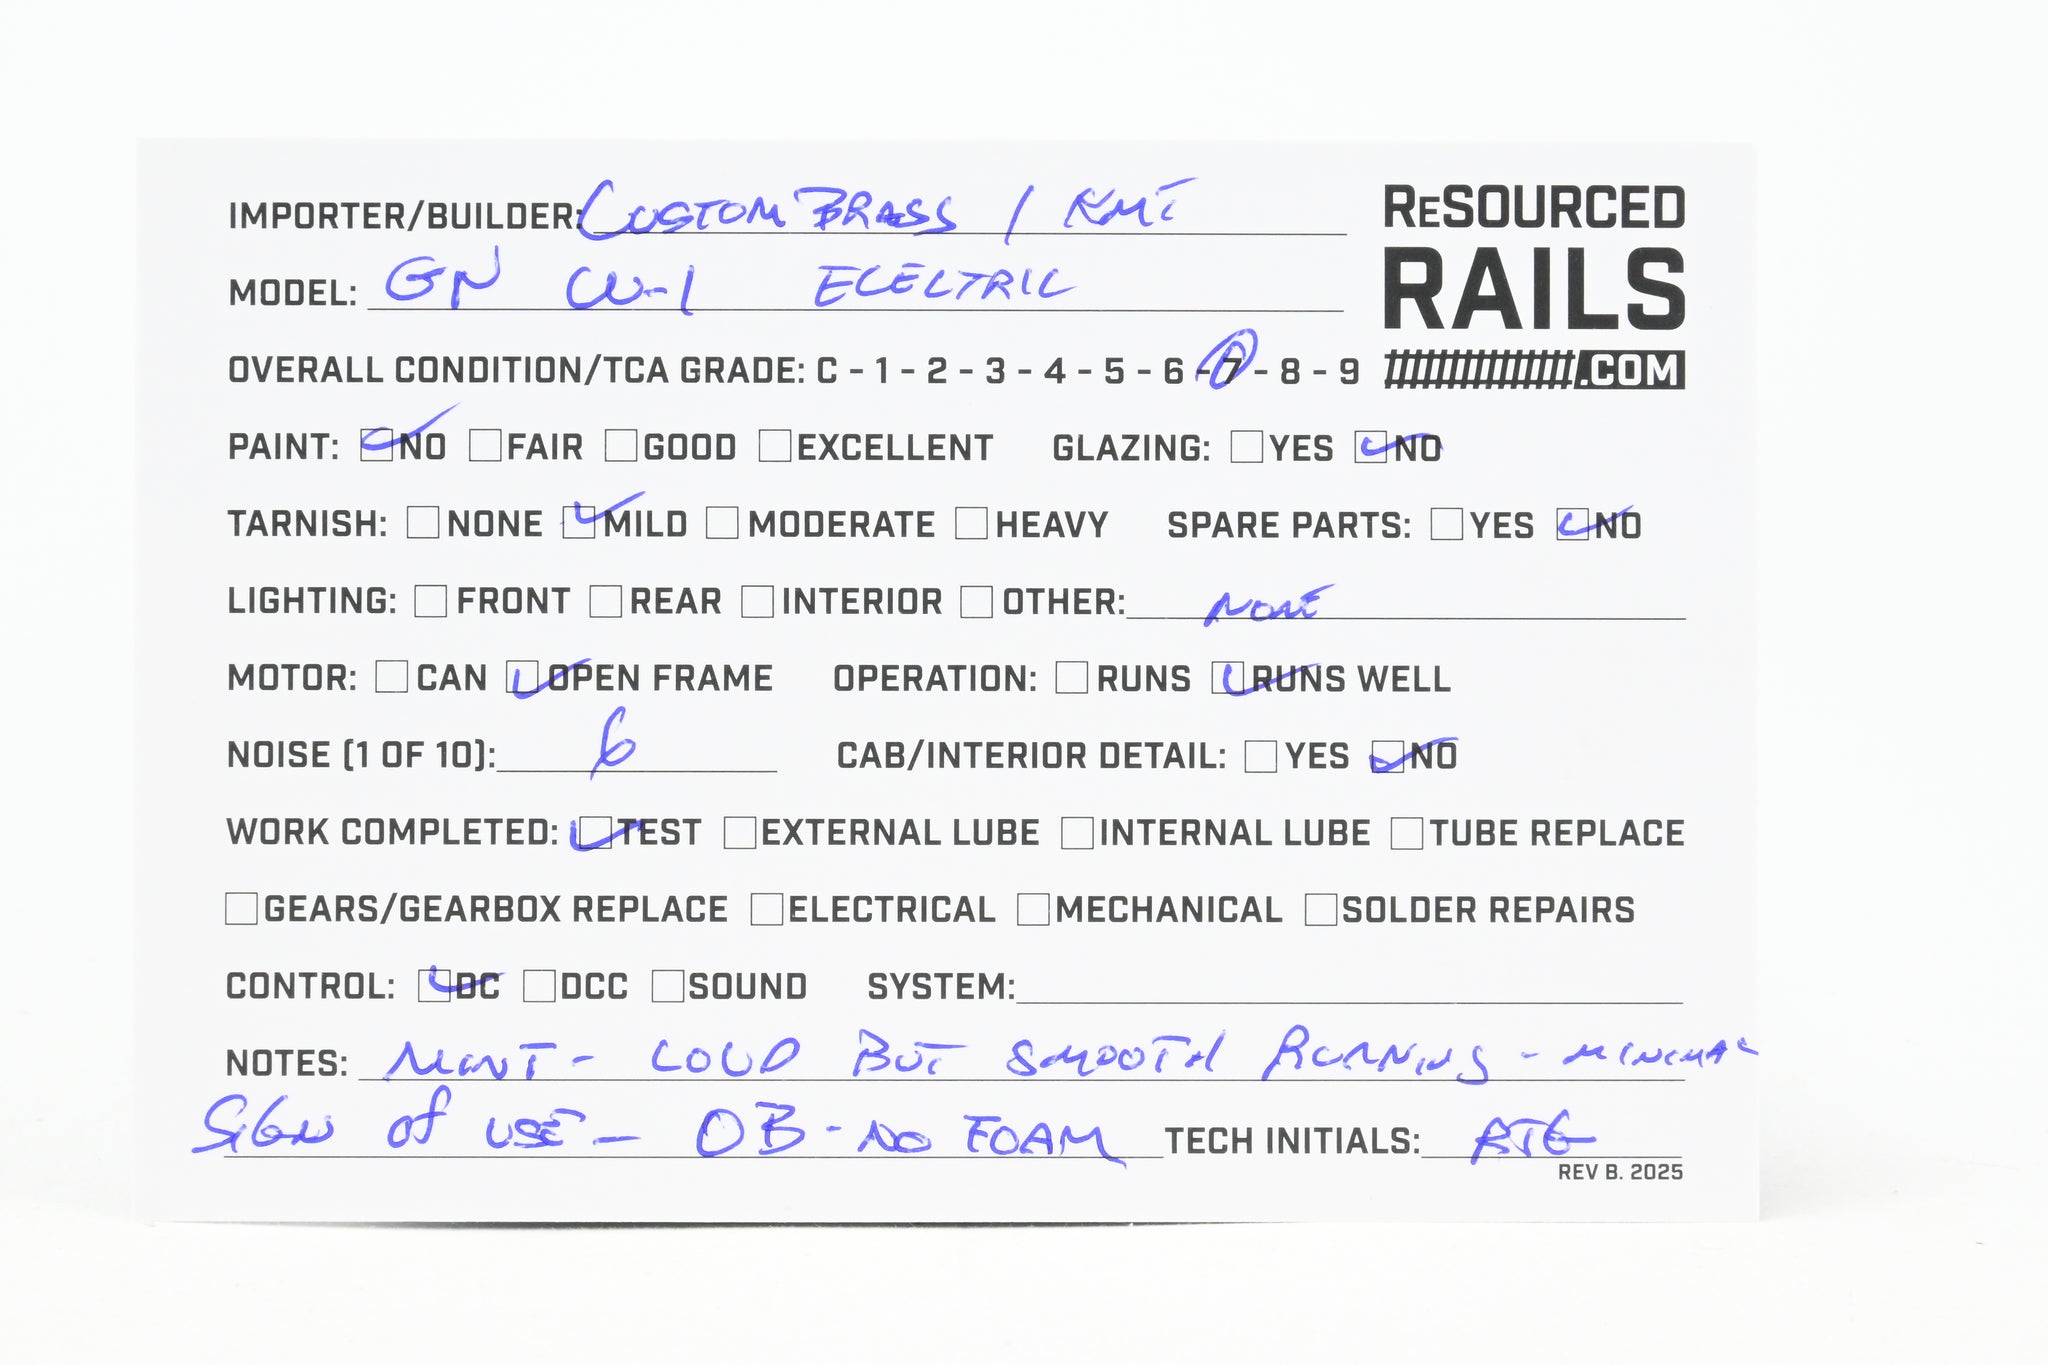 IMPORTER/BUILDER: CUSTOM BRASS / KMT
RESOURCED
RAILS
.COM
MODEL: GN W-1 ELECTRIC
OVERALL CONDITION/TCA GRADE: C - 1 - 2 - 3 - 4 - 5 - 6 - 7 - 8 - 9
PAINT: NO FAIR GOOD EXCELLENT GLAZING: YES NO
TARNISH: NONE MILD MODERATE HEAVY SPARE PARTS: YES NO
LIGHTING: FRONT REAR INTERIOR OTHER: NONE
MOTOR: CAN OPEN FRAME OPERATION: RUNS RUNS WELL
NOISE (1 OF 10): 6 CAB/INTERIOR DETAIL: YES NO
WORK COMPLETED: TEST EXTERNAL LUBE INTERNAL LUBE TUBE REPLACE
GEARS/GEARBOX REPLACE ELECTRICAL MECHANICAL SOLDER REPAIRS
CONTROL: DC DCC SOUND SYSTEM:
NOTES: MINT - LOUD BUT SMOOTH RUNNING - MINIMAL
SIGN OF USE - OB - NO FOAM TECH INITIALS:
REV B. 2025